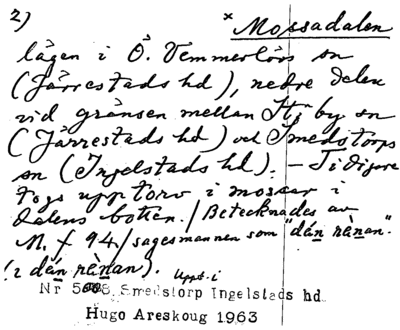 2) × Mossadalen
lägen i Ö. Vemmerlövs sn
(Järrestads hd), nedre delen
vid gränsen mellan Stby sn
(Järrestads hd) och Smedstorps
sn (Ingelstads hd). — Tidigare
togs upp torv i mossar i
dalens botten. / Betecknades av
M. f 94. / sagesmannen som "dén rènan."
(i dén rènan). Uppt. i
Nr 5 8 Smedstorp Ingelstads hd
Hugo Areskoug 1963